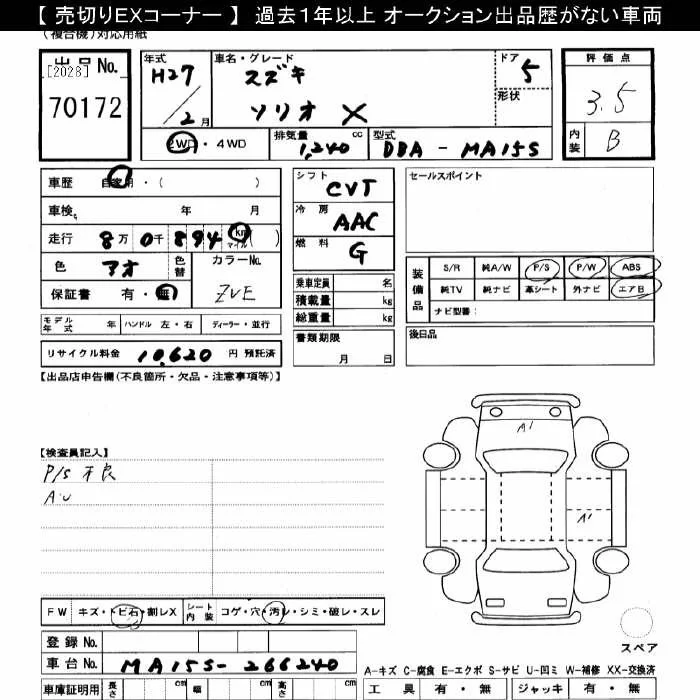 【 売切りEXコーナー 】 過去1年以上 オークション出品歴がない車両
(複合機)対応用紙
出品No.
[2028]
70172
年式
H27
2月
車名・グレード
スズキ
ソリオ X
ドア
5
形状
評価点
3.5
内装
B
2WD・4WD
排気量 cc
1,240
型式
DBA - MA15S
車歴 自家用・( )
車検 年 月
走行 8万 0千 894 km マイル ( )
色 アオ 色替 カラーNo.
ZVE
保証書 有・無
モデル年式 年 ハンドル 左・右 ディーラー・並行
リサイクル料金 10,620 円 預託済
シフト
CVT
冷房
AAC
燃料
G
乗車定員 名
積載量 kg
総重量 kg
書類期限
月 日
セールスポイント
装備品
S/R 純A/W P/S P/W ABS
純TV 純ナビ 革シート 外ナビ エアB
ナビ型番:
後日品
【出品店申告欄(不良箇所・欠品・注意事項等)】
【検査員記入】
P/S 不良
A.U
A1
A1
FW キズ・トビ石・割レX シート内装 コゲ・穴・汚レ・シミ・破レ・スレ
登録No.
車台No. MA15S-266240
スペア
A-キズ C-腐食 E-エクボ S-サビ U-凹ミ W-補修 XX-交換済
車庫証明用 長さ cm 幅 cm 高さ cm
工具 有・無 ジャッキ 有・無